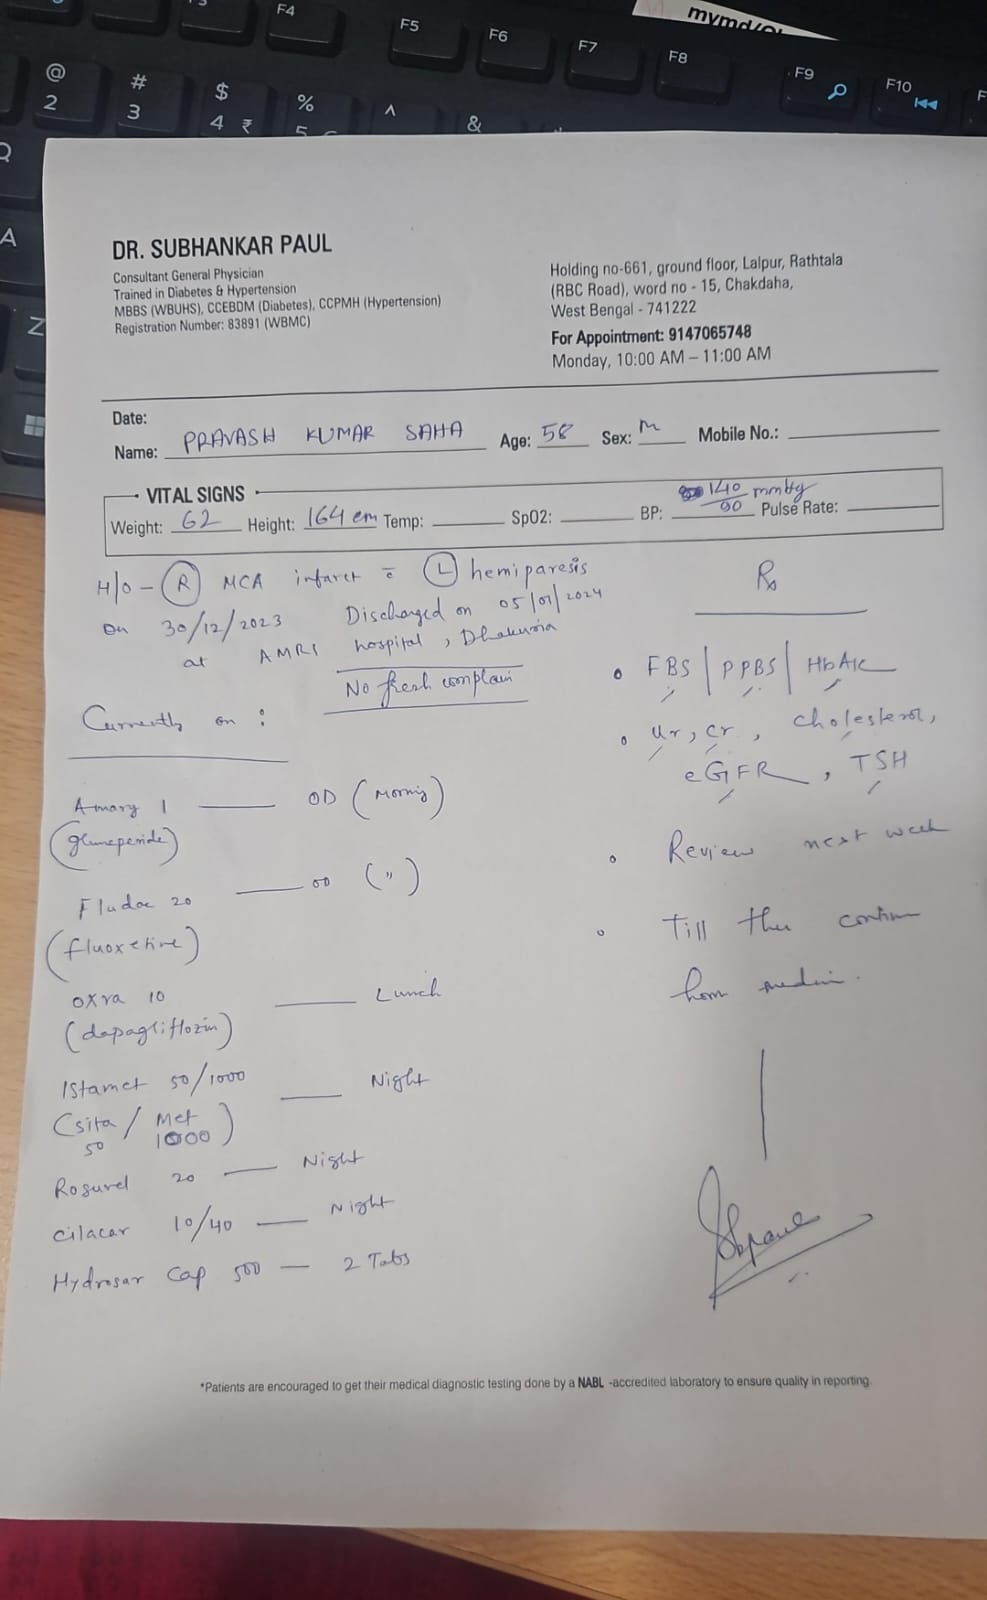 F4
F5
F6
F7
F8
F9
F10
@
2
#
3
$
4 ₹
%
5
^
&
A
Z
DR. SUBHANKAR PAUL
Consultant General Physician
Trained in Diabetes & Hypertension
MBBS (WBUHS), CCEBDM (Diabetes), CCPMH (Hypertension)
Registration Number: 83891 (WBMC)
Holding no-661, ground floor, Lalpur, Rathtala
(RBC Road), word no - 15, Chakdaha,
West Bengal - 741222
For Appointment: 9147065748
Monday, 10:00 AM – 11:00 AM
Date:
Name: PRAVASH KUMAR SAHA Age: 58 Sex: M Mobile No.:
VITAL SIGNS
Weight: 62 Height: 164 cm Temp: SpO2: BP: 140/90 mmHg Pulse Rate:
H/O - (R) MCA infarct c̄ (L) hemiparesis
on 30/12/2023 Discharged on 05/01/2024
at AMRI hospital, Dhakuria
No fresh complain
Currently on :
Amary 1 OD (Morning)
(glimeperide)
Fludac 20 OD (")
(fluoxetine)
OXra 10 Lunch
(dapagliflozin)
Istamet 50/1000 Night
(sita/ Met)
50 1000
Rosuvel 20 Night
Cilacar 10/40 Night
Hydrosar Cap 500 — 2 Tabs
Rx
• FBS | PPBS | HbA1c
• Ur, Cr, Cholesterol,
eGFR, TSH
• Review next week
• Till then continue
home
*Patients are encouraged to get their medical diagnostic testing done by a NABL -accredited laboratory to ensure quality in reporting.